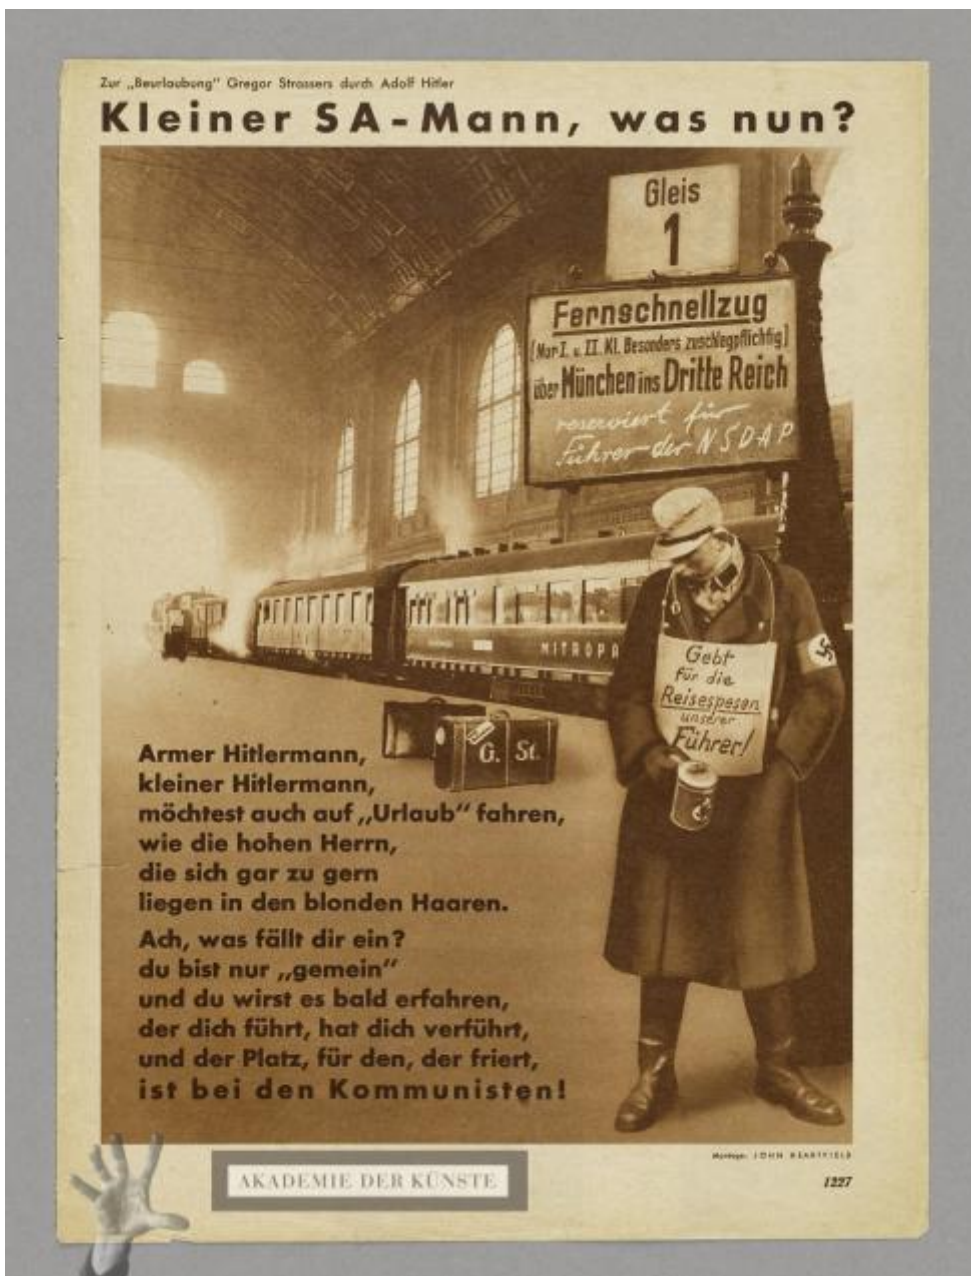 Zur „Beurlaubung" Gregor Strassers durch Adolf Hitler
Kleiner SA-Mann, was nun?
Gleis
1
Fernschnellzug
(Nur I. u. II. Kl. Besonders zuschlagpflichtig)
über München ins Dritte Reich
reserviert für
Führer der NSDAP
MITROPA
Gebt
für die
Reisespesen
unserer
Führer!
G. St.
Armer Hitlermann,
kleiner Hitlermann,
möchtest auch auf „Urlaub" fahren,
wie die hohen Herrn,
die sich gar zu gern
liegen in den blonden Haaren.
Ach, was fällt dir ein?
du bist nur „gemein"
und du wirst es bald erfahren,
der dich führt, hat dich verführt,
und der Platz, für den, der friert,
ist bei den Kommunisten!
Montage: JOHN HEARTFIELD
AKADEMIE DER KÜNSTE
1227